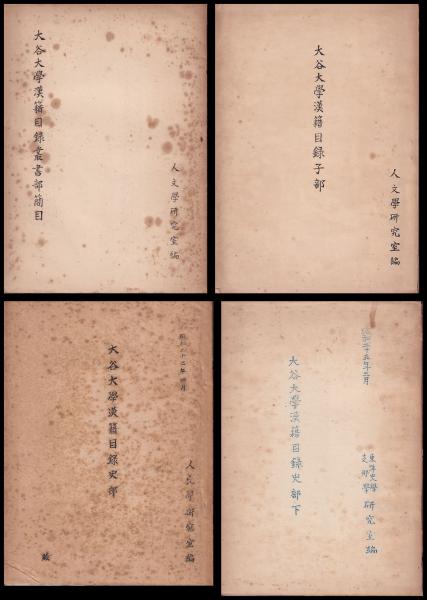 大谷大學漢籍目録叢書部簡目
人文學研究室編
大谷大學漢籍目録子部
人文學研究室編
昭和二十二年四月
大谷大學漢籍目録史部
人文學研究室編
昭和二十五年三月
大谷大學漢籍目録史部下
東洋史學
支那學
研究室編